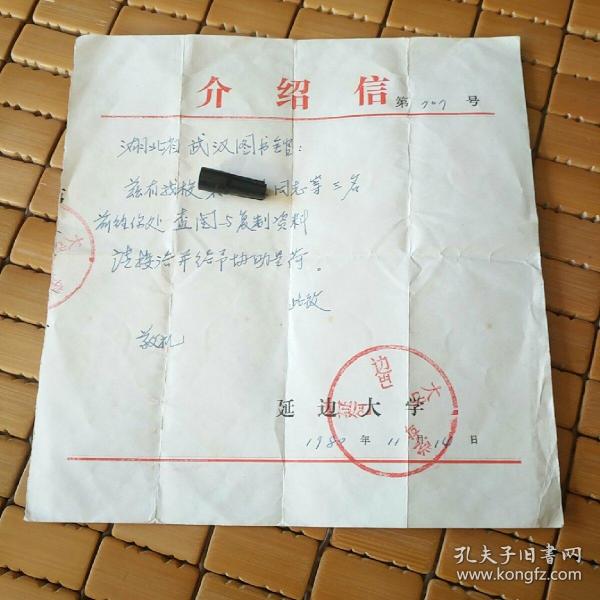 介绍信
第 707 号
湖北省武汉图书馆:
兹有我校 同志等三名
前往你处查阅与复制资料
请接洽并给予协助是荷。
此致
敬礼
延边大学
1980年11月14日
孔夫子旧书网
www.kongfz.com